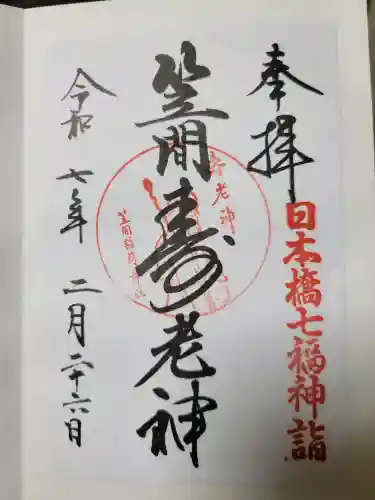 奉拝
日本橋七福神詣
笠間寿老神
寿老神
笠間稲荷神社
令和七年二月二十六日